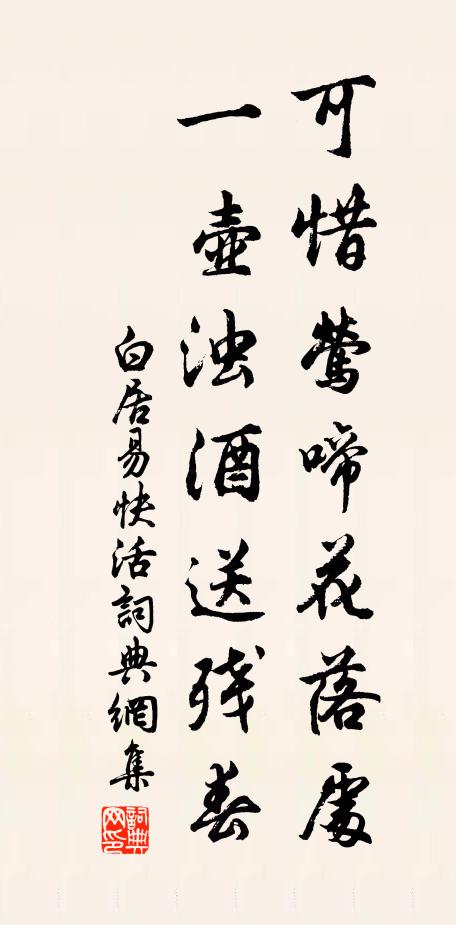 可惜莺啼花落處
一壺浊酒送残春
白居易快活詞典網集
詞典网印